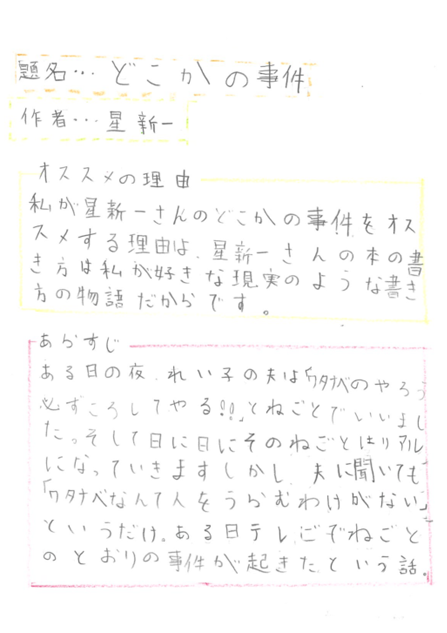 題名…どこかの事件
作者…星新一
オススメの理由
私が星新一さんのどこかの事件をオス
スメする理由は、星新一さんの本の書
き方は私が好きな現実のような書き
方の物語だからです。
あらすじ
ある日の夜、れい子の夫は「ワタナベのやろう
必ずころしてやる!!」とねごとでいいまし
た。そして日に日にそのねごとはリアル
になっていきますしかし、夫に聞いても
「ワタナベなんて人をうらむわけがない」
というだけ。ある日テレビでねごと
のとおりの事件が起きたという話。